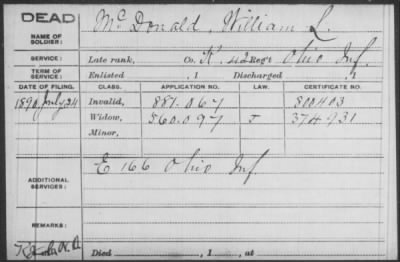 DEAD
NAME OF SOLDIER: McDonald, William L.
SERVICE: Late rank, Co. K. 42 Reg't Ohio Inf.
TERM OF SERVICE: Enlisted , 1 Discharged , 1
DATE OF FILING. CLASS. APPLICATION NO. LAW. CERTIFICATE NO.
1890, July 24 Invalid, 881.067 800403
Widow, 560.097 J 374931
Minor,
ADDITIONAL SERVICES: E 166 Ohio Inf.
REMARKS:
Died , 1 , at